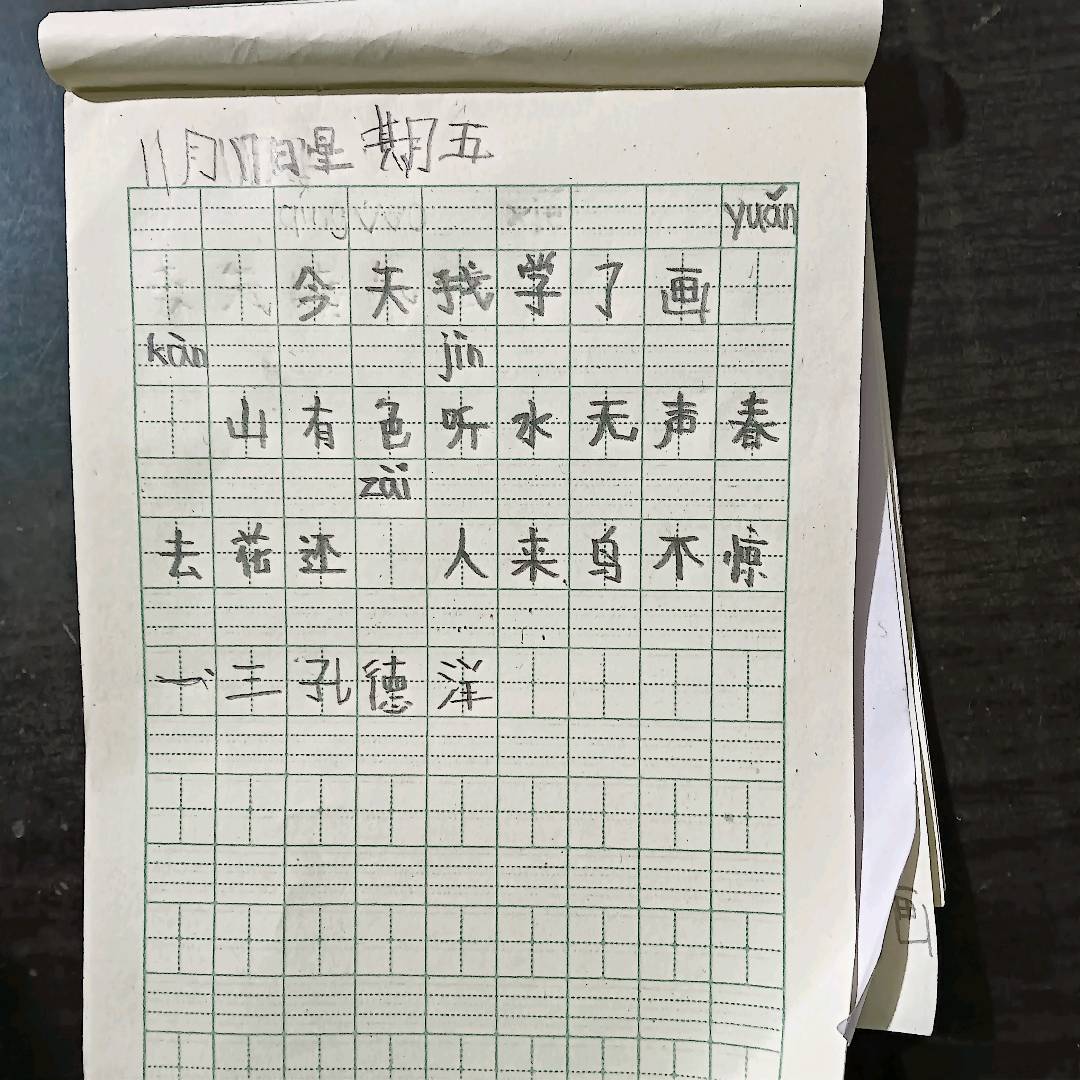 11月17日星期五
yuǎn
今天我学了画
kàn jīn
山有色听水无声春
zài
去花还 人来鸟不惊
一王孔德洋
画